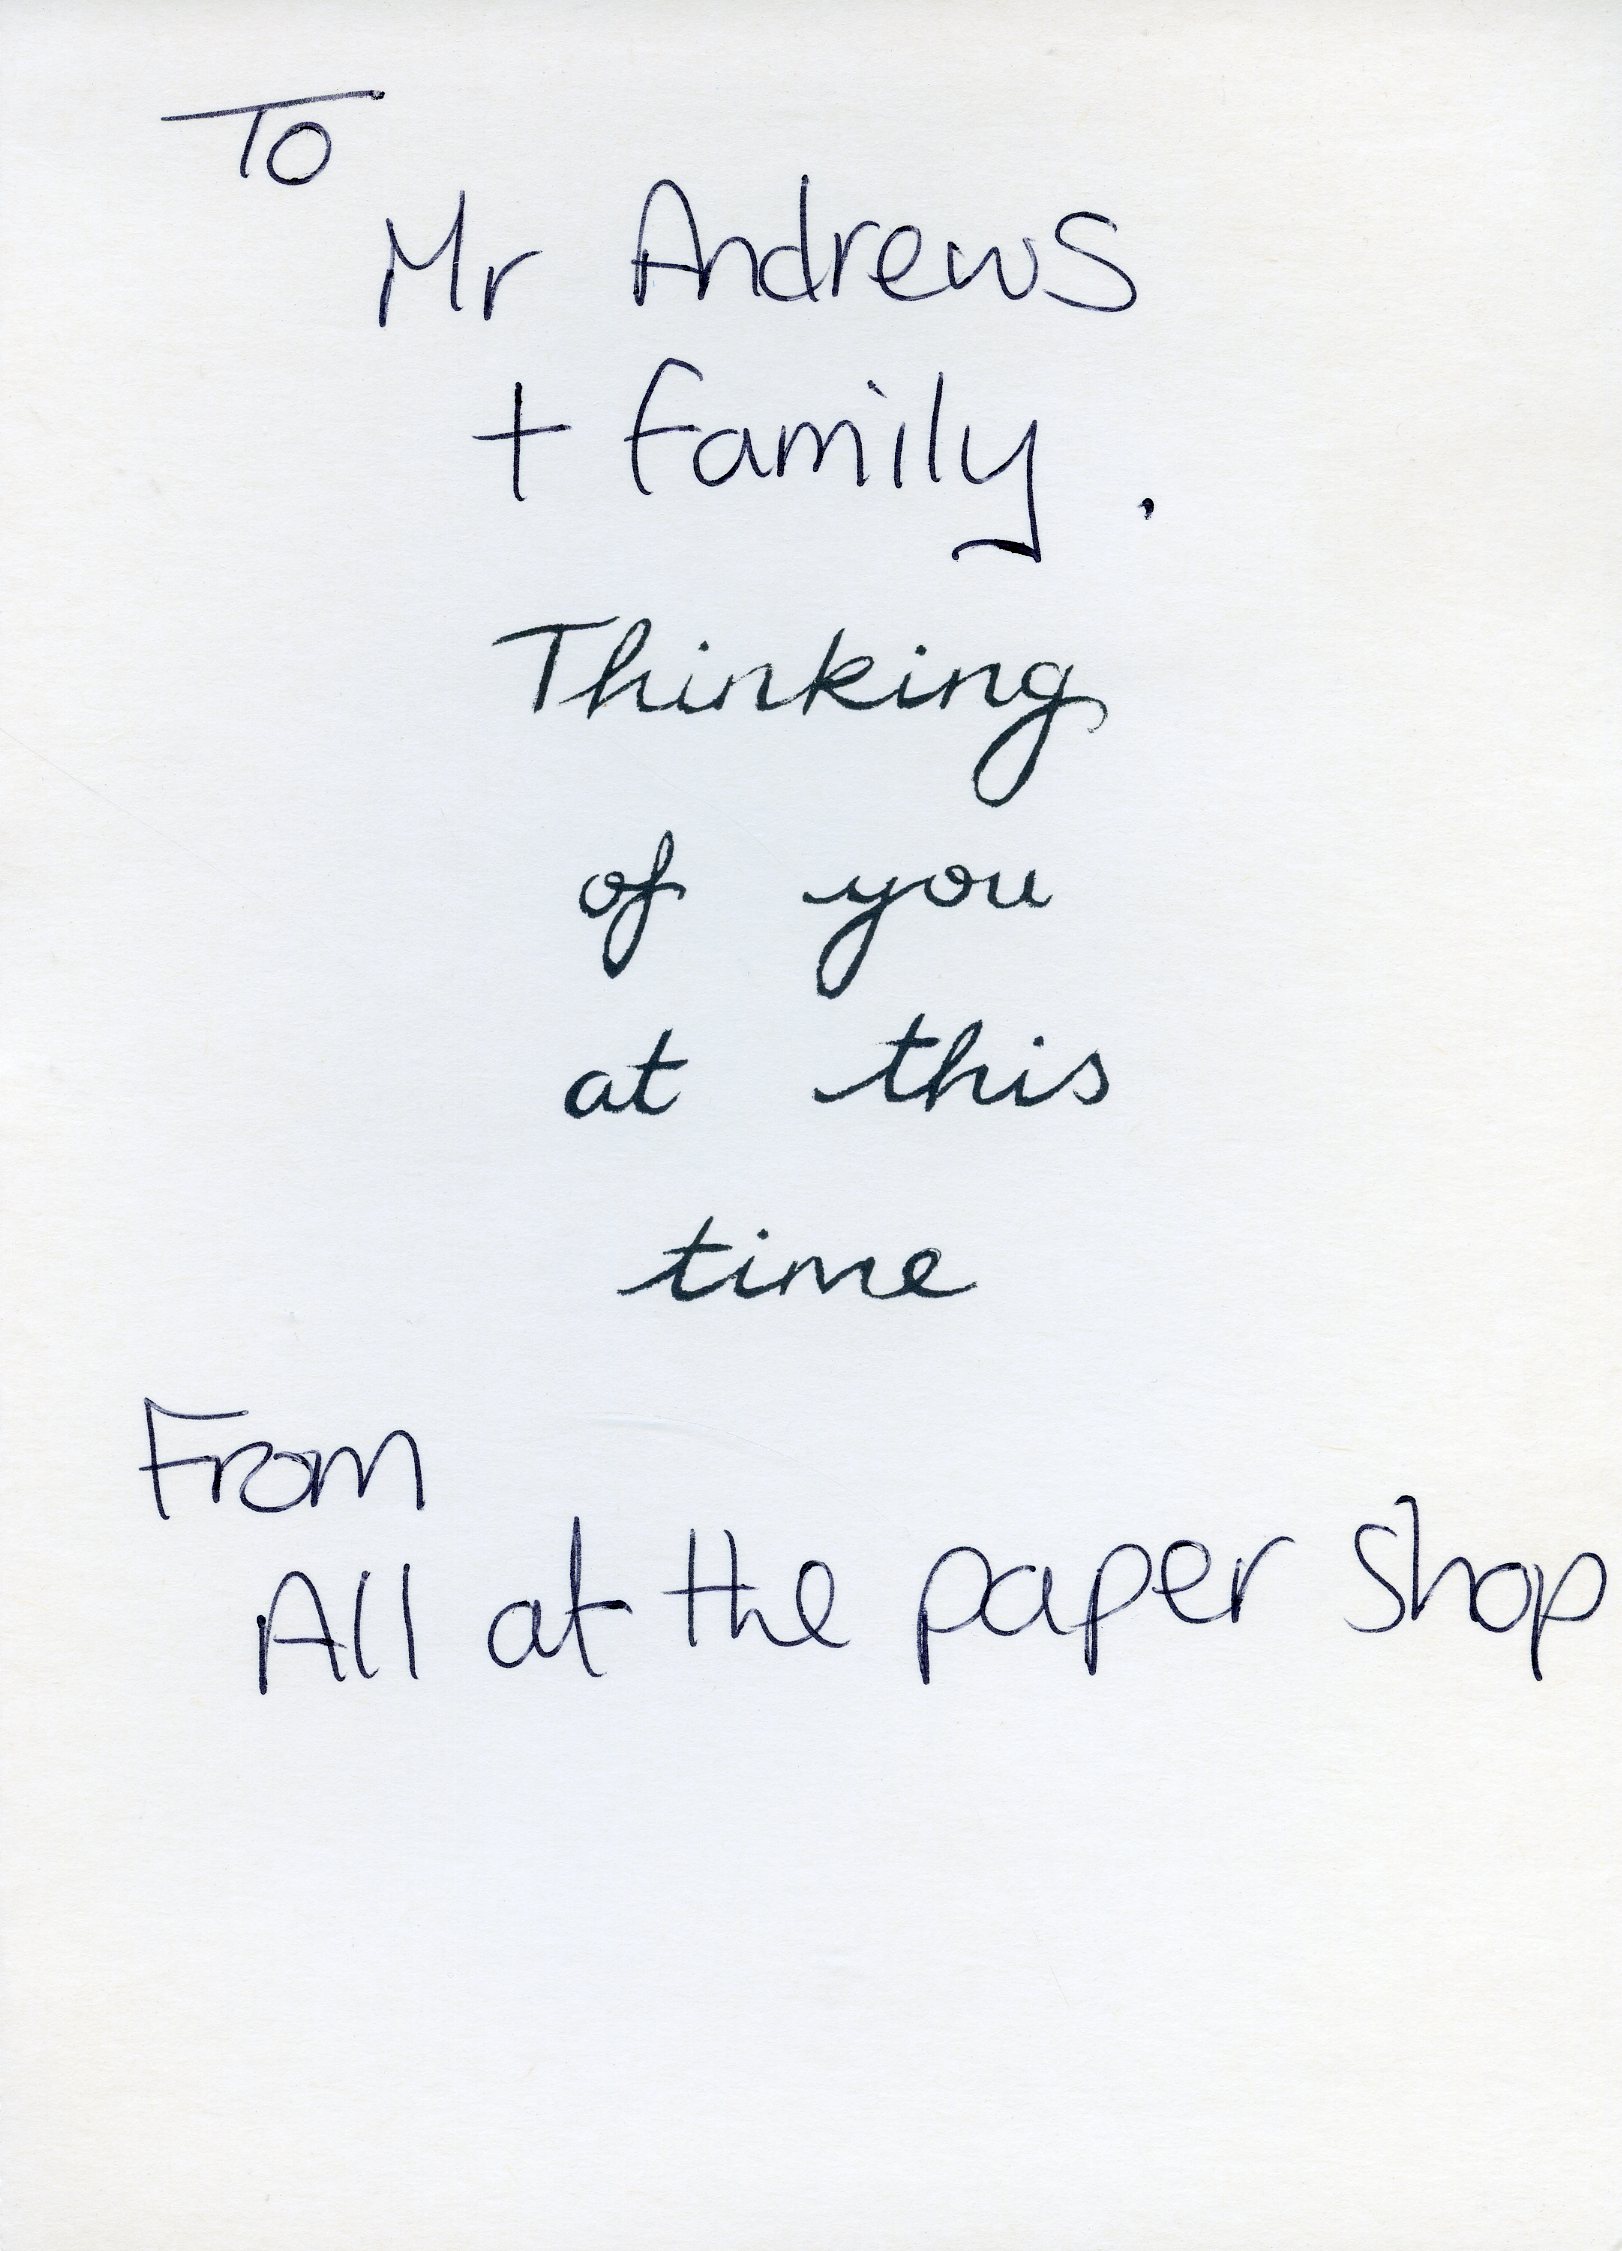 To
Mr Andrews
+ family.
Thinking
of you
at this
time
From
All at the paper shop